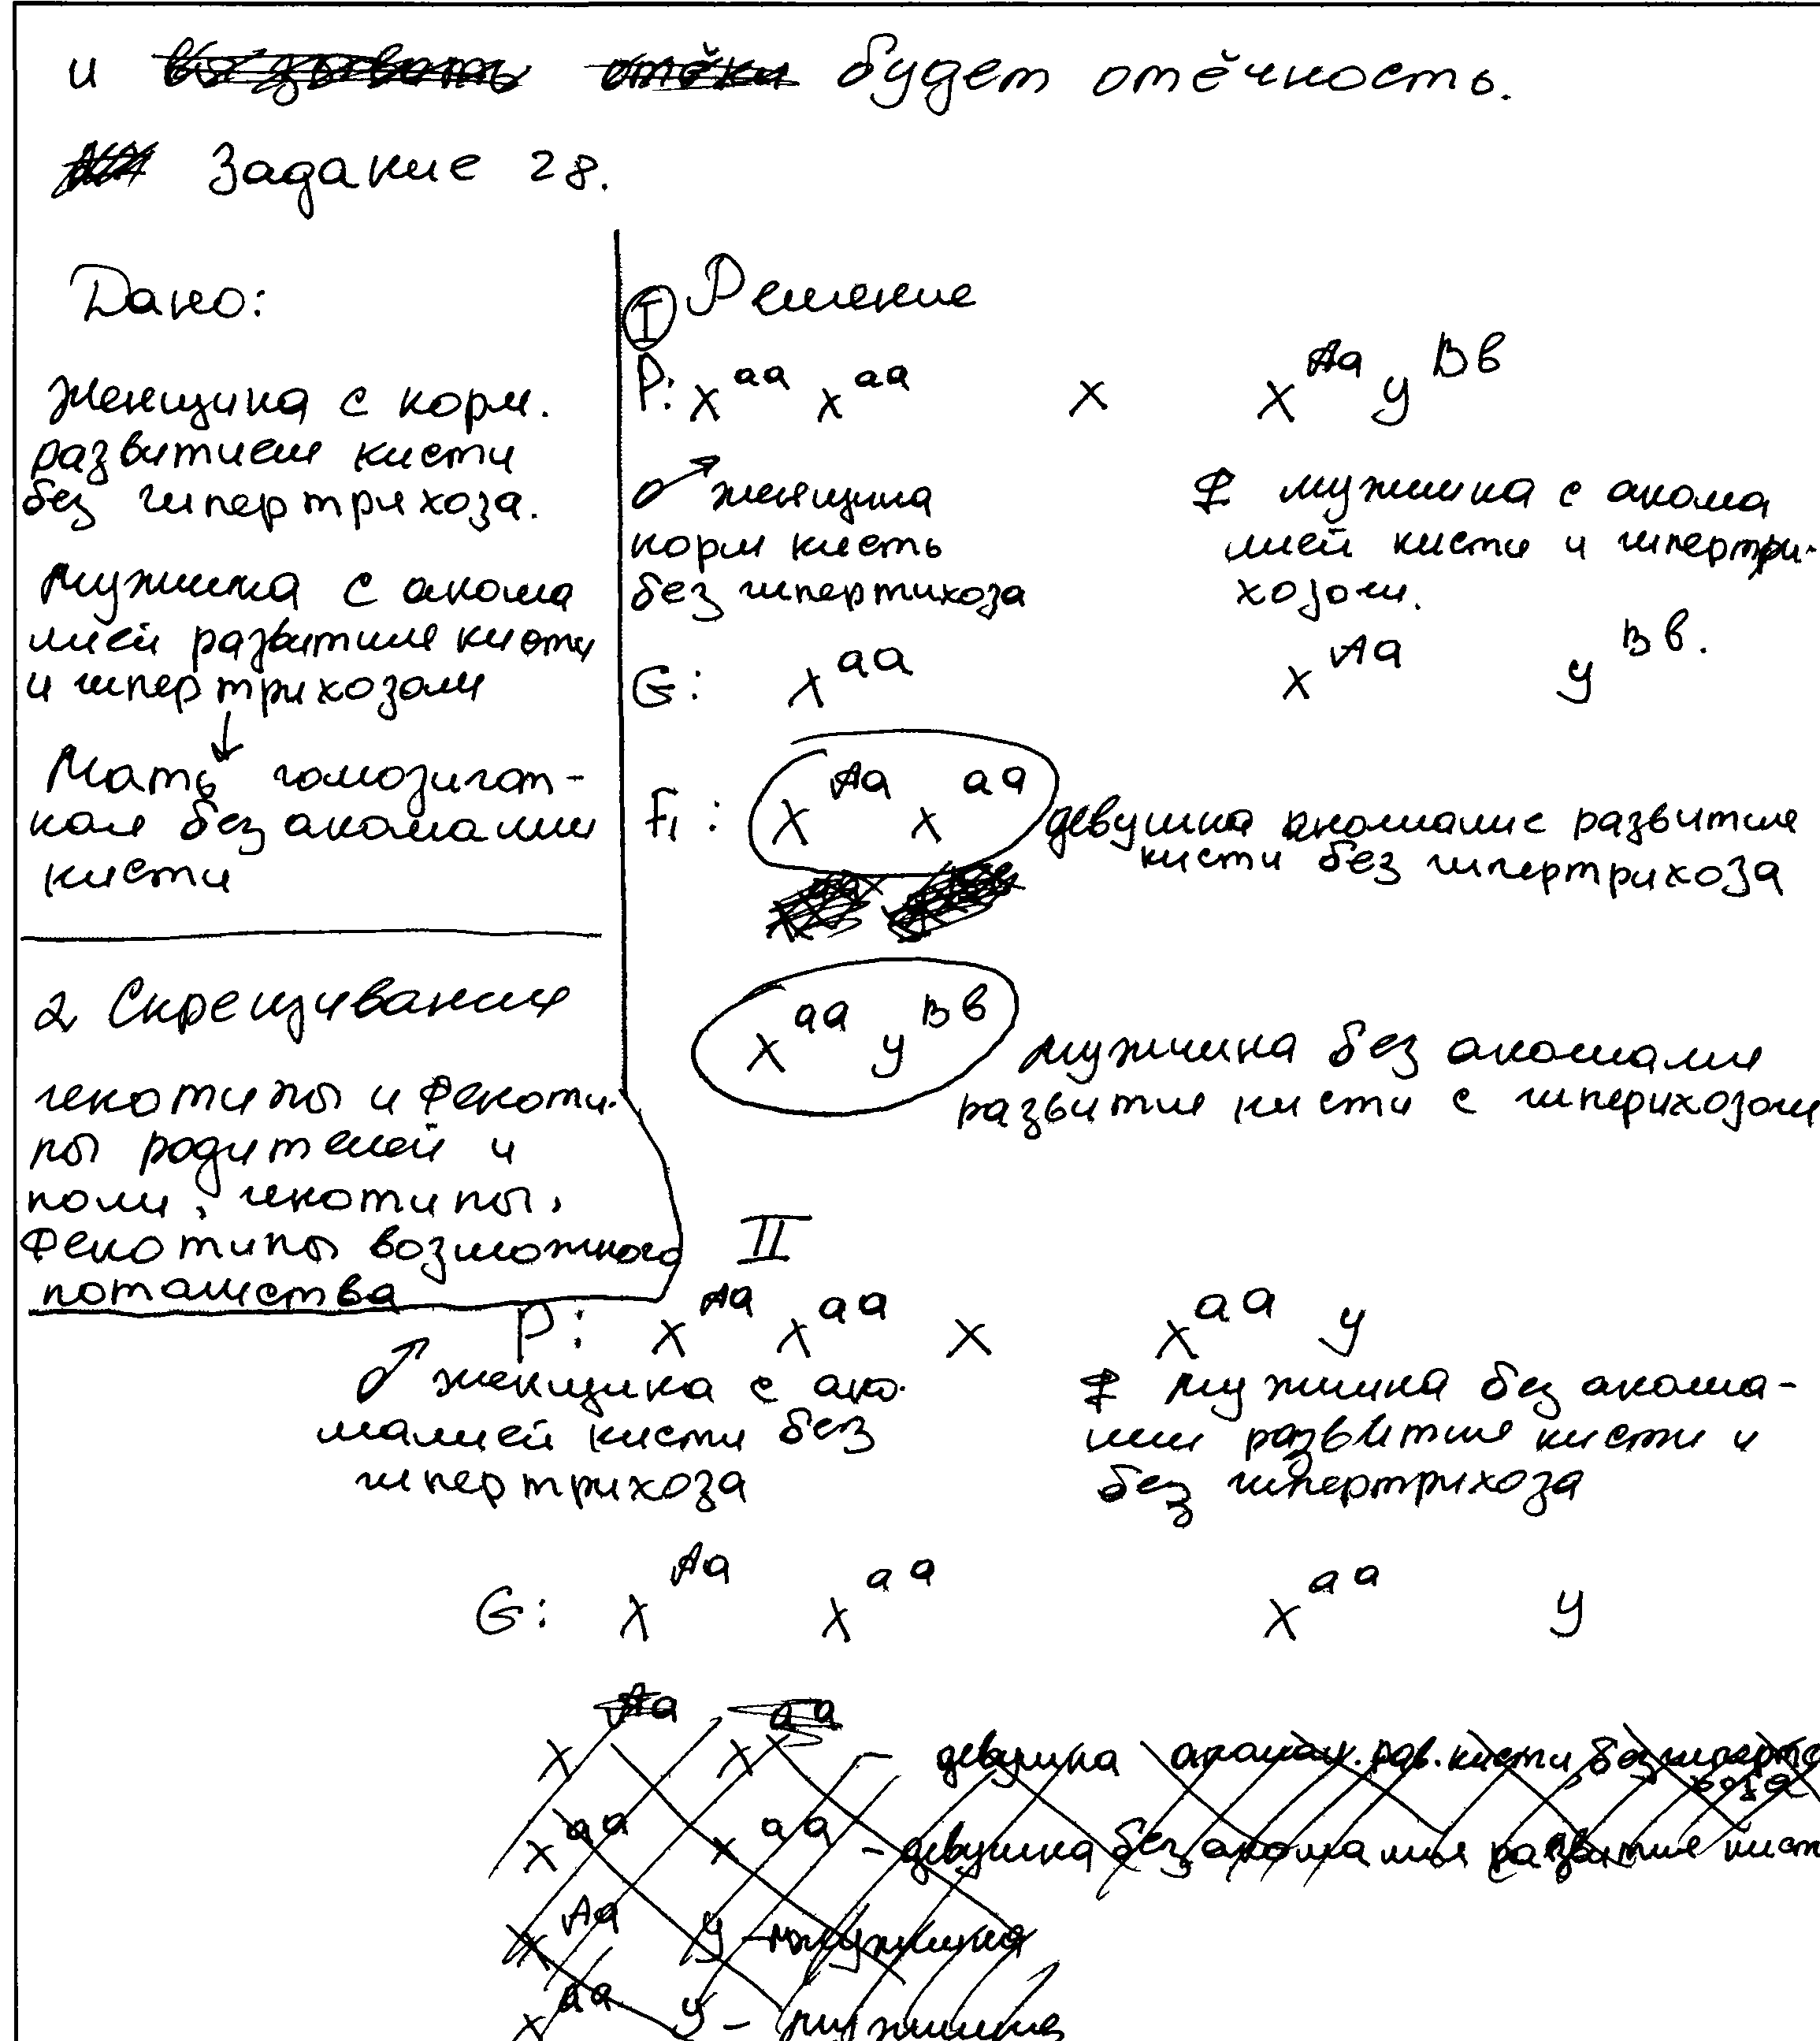 и будет отёчность.
Задание 28.
Дано:
Женщина с норм.
развитием кисти
без гипертрихоза.
Мужчина с анома
лией развития кисти
и гипертрихозом
↓
Мать гомозигот-
ная без аномалии
кисти
2 Скрещивания
генотипы и феноти.
пы родителей и
поли, генотипы,
Фенотипы возможного
потомства
I Решение
P: X^aa X^aa x X^Aa У^Вв
♂ женщина
норм кисть
без гипертихоза
♀ мужчина с анома
лией кисти и гипертри-
хозом.
G: X^aa X^Aa У^Вв.
F1: X^Aa X^aa девушка аномалис развития
кисти без гипертрихоза
X^aa У^Вв мужчина без аномалии
развития кисти с гиперихозом
II
P: X^Aa X^aa x X^aa У
♂ женщина с ано.
малией кисти без
гипертрихоза
♀ мужчина без анома-
лии развития кисти и
без гипертрихоза
G: X^Aa X^aa X^aa У
X^Aa X^aa – девушка аномал. раз. кисти, без
X^aa X^aa – девушка без аномалия развития кист
X^Aa У – мужчина
X^aa У – мужчина